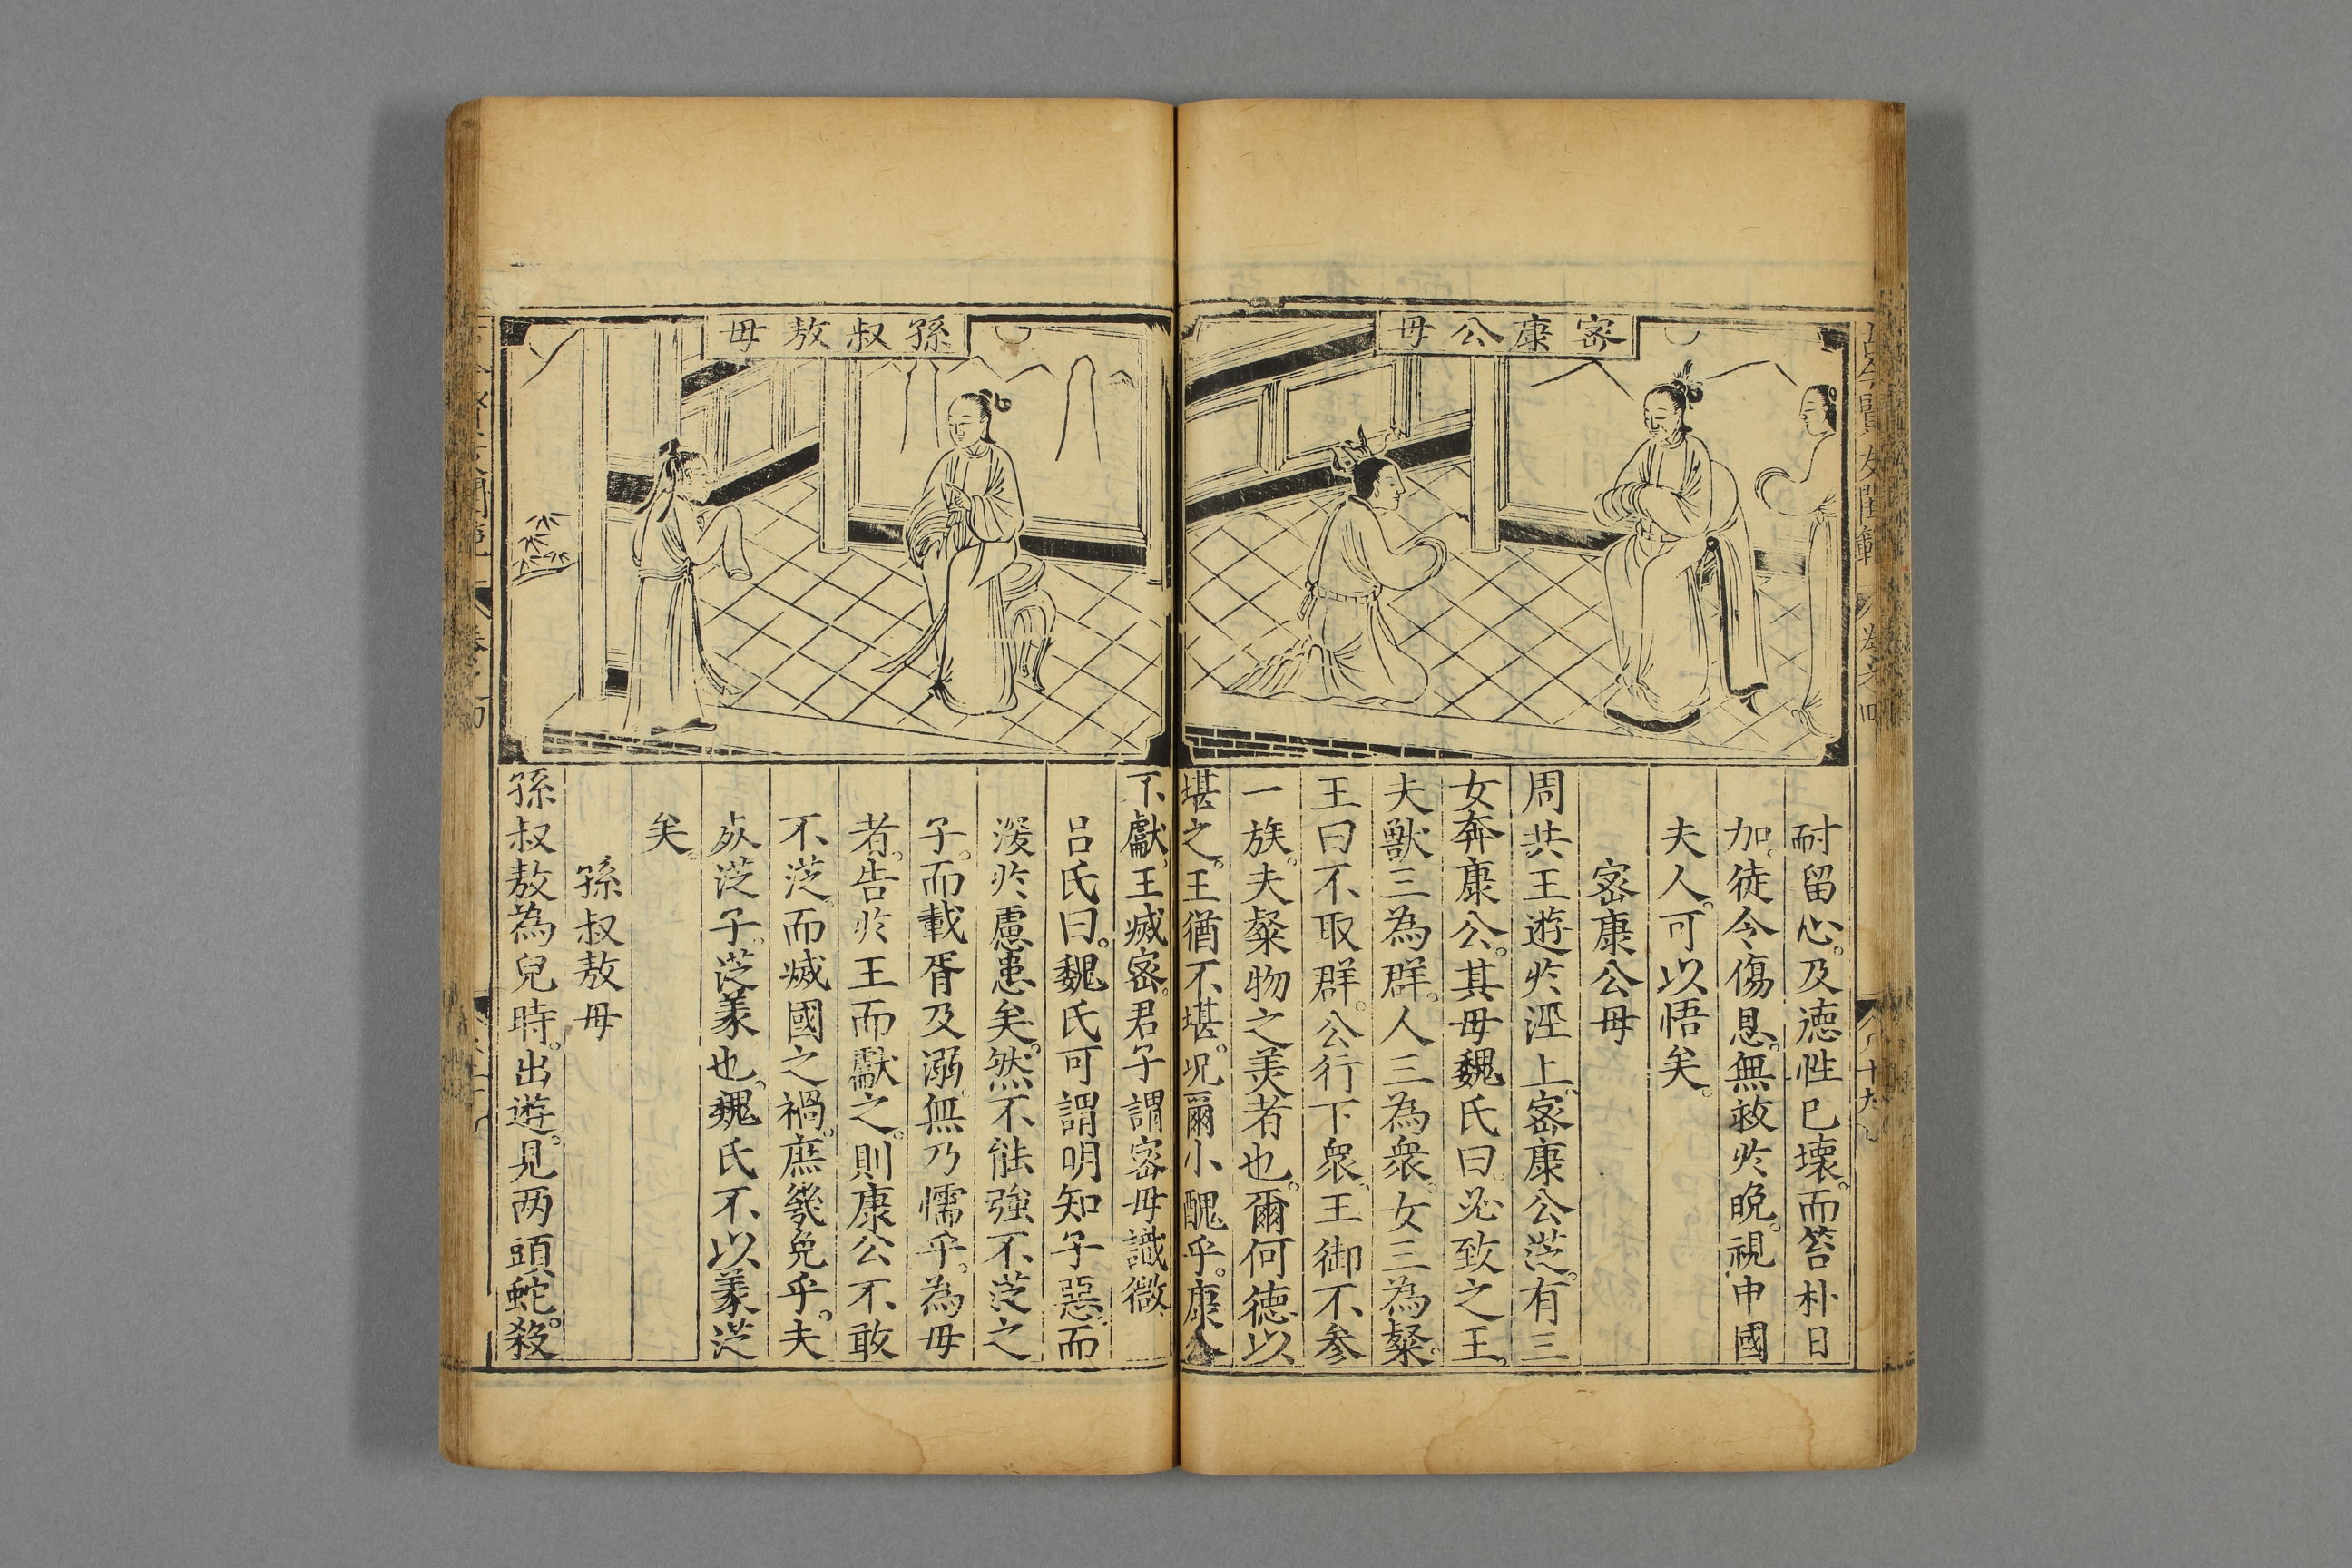 密康公母
耐留心。及德性已壞。而笞朴日
加。徒令傷恩。無救於晚。視申國
夫人。可以悟矣。
密康公母
周共王遊於涇上。密康公從。有三
女奔康公。其母魏氏曰。必致之王。
夫獸三為群。人三為衆。女三為粲。
王曰不取群。公行下衆。王御不參
一族。夫粲物之美者也。爾何德以
堪之。王猶不堪。況爾小醜乎。康公
不獻。王滅密。君子謂密母識微。
呂氏曰。魏氏可謂明知子惡。而
深於慮患矣。然不能強不從之
子。而載胥及溺。無乃懦乎。為母
者。告於王而獻之。則康公不敢
不從。而滅國之禍。庶幾免乎。夫
死從子。從義也。魏氏不以義從
矣。
孫叔敖母
孫叔敖為兒時。出遊。見两頭蛇。殺
孫叔敖母
古今賢女閨範 卷之四